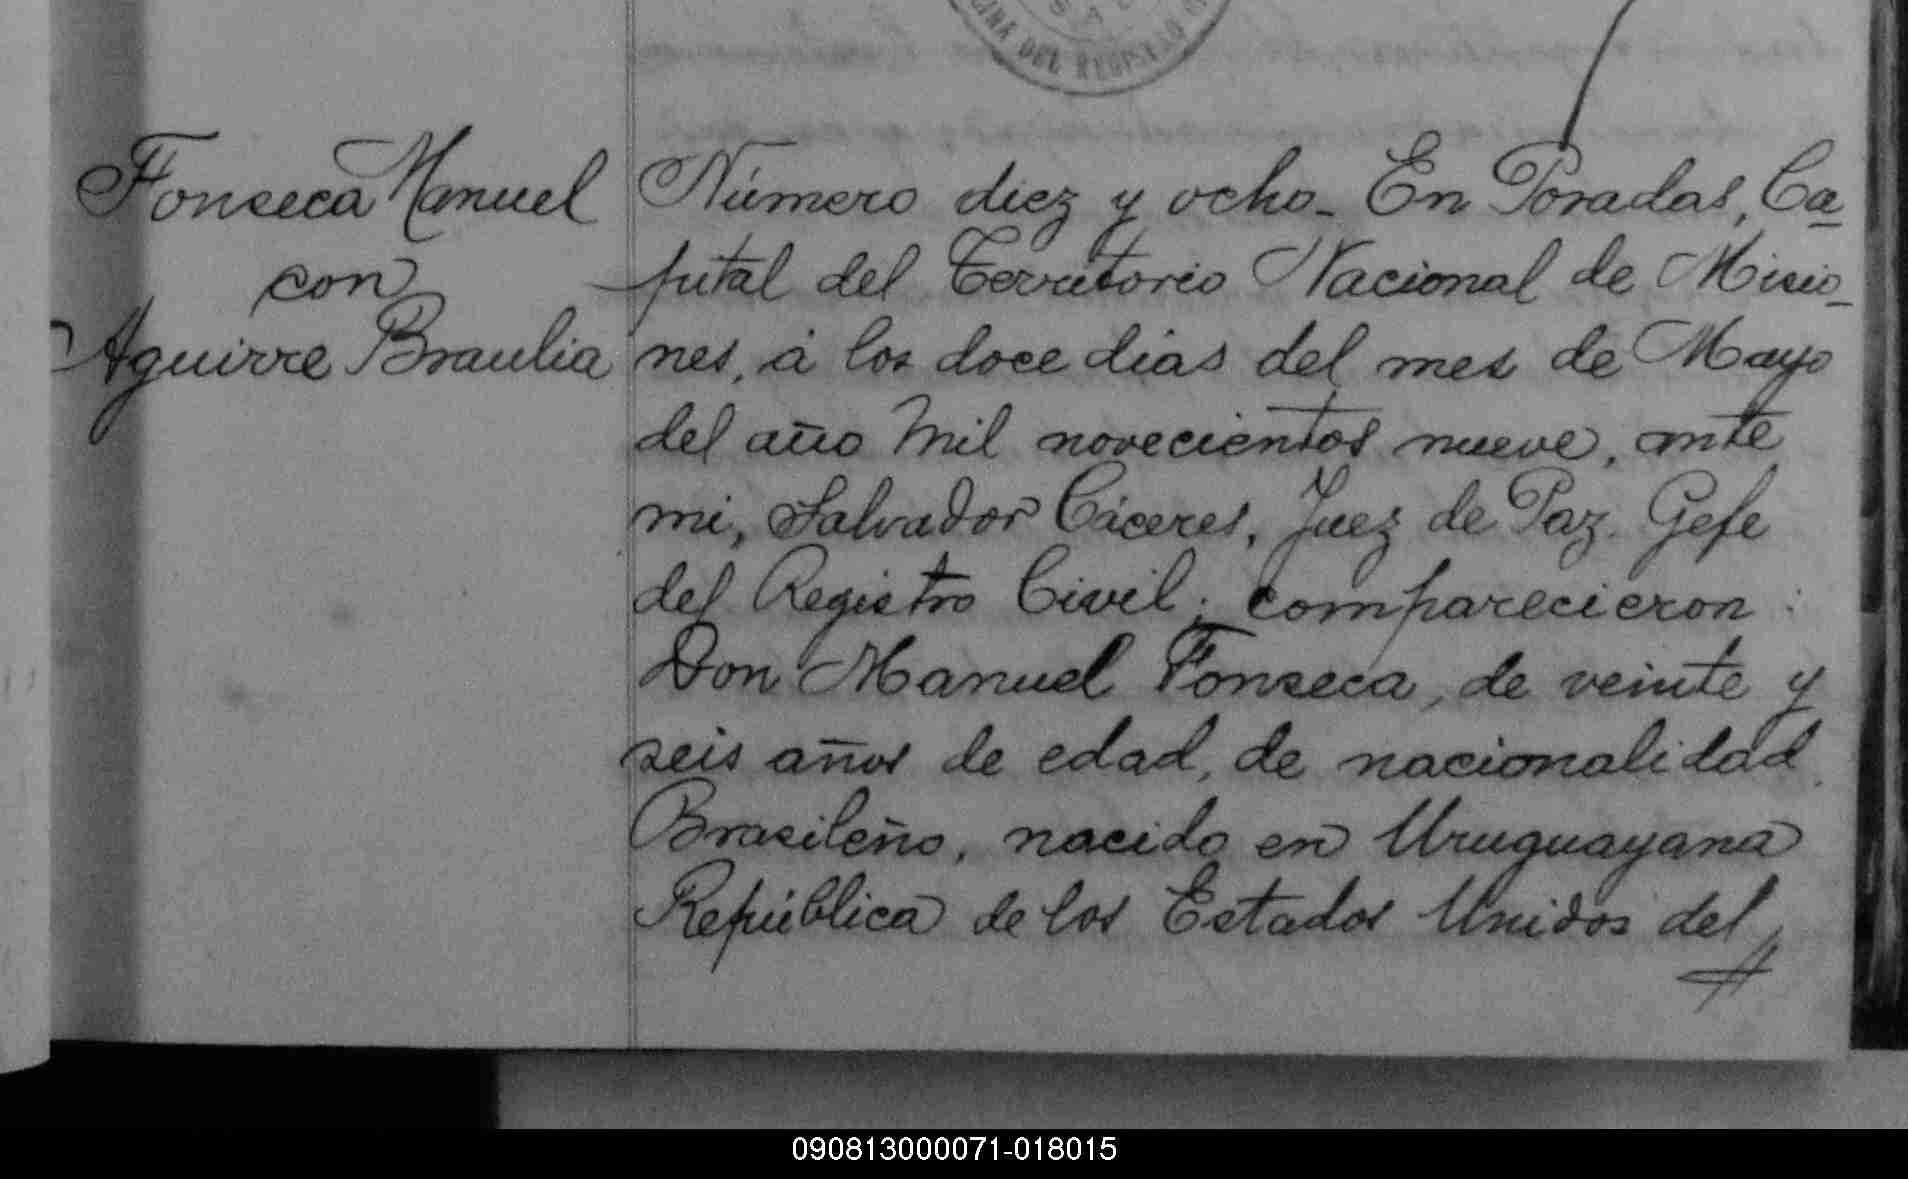 GINA DEL REGISTRO
Fonseca Manuel
con
Aguirre Braulia
Número diez y ocho_ En Posadas, Ca_
pital del Territorio Nacional de Misio_
nes, á los doce dias del mes de Mayo
del año mil novecientos nueve, ante
mi, Salvador Cáceres, Juez de Paz. Gefe
del Registro Civil; comparecieron:
Don Manuel Fonseca, de veinte y
seis años de edad, de nacionalidad
Brasileño, nacido en Uruguayana
República de los Estados Unidos del
090813000071-018015